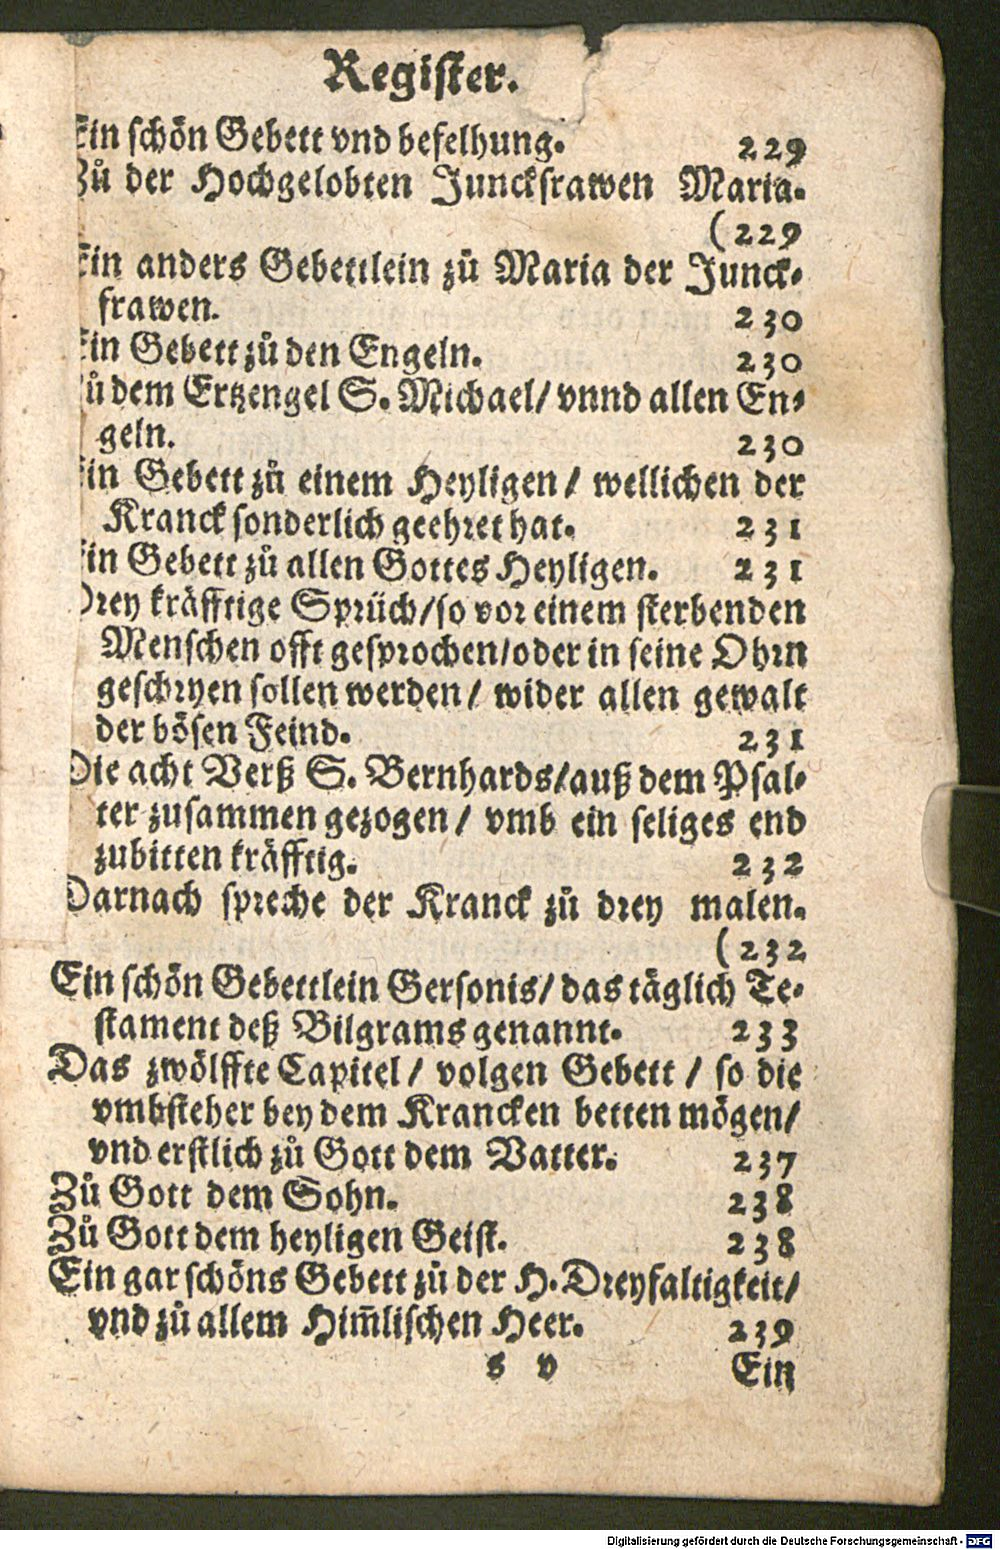 Register.
Ein schön Gebett vnd befelhung. 229
Zů der Hochgelobten Junckfrawen Maria.
(229
Ein anders Gebettlein zů Maria der Junck-
frawen. 230
Ein Gebett zů den Engeln. 230
Zů dem Ertzengel S. Michael/ vnnd allen En-
geln. 230
Ein Gebett zů einem Heyligen / wellichen der
Kranck sonderlich geehret hat. 231
Ein Gebett zů allen Gottes Heyligen. 231
Drey kräfftige Sprüch/so vor einem sterbenden
Menschen offt gesprochen/oder in seine Ohrn
geschryen sollen werden / wider allen gewalt
der bösen Feind. 231
Die acht Verß S. Bernhards/auß dem Psal-
ter zusammen gezogen / vmb ein seliges end
zubitten kräfftig. 232
Darnach spreche der Kranck zů drey malen.
(232
Ein schön Gebettlein Gersonis/ das täglich Te-
stament deß Bilgrams genannt. 233
Das zwölffte Capitel / volgen Gebett / so die
vmbsteher bey dem Krancken betten mögen/
vnd erstlich zů Gott dem Vatter. 237
Zů Gott dem Sohn. 238
Zů Gott dem heyligen Geist. 238
Ein gar schöns Gebett zů der H. Dreyfaltigkeit/
vnd zů allem Him̃lischen Heer. 239
s v Ein
Digitalisierung gefördert durch die Deutsche Forschungsgemeinschaft - DFG